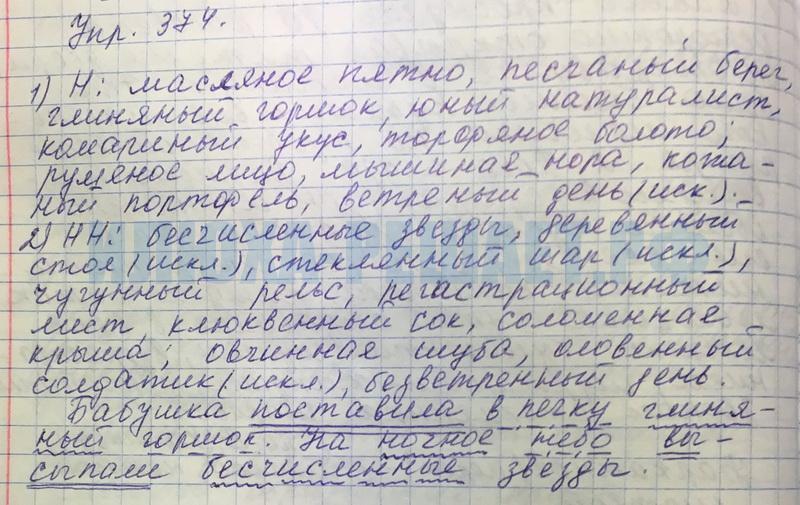 Упр. 374.
1) Н: масляное пятно, песчаный берег,
глиняный горшок, юный натуралист,
комариный укус, торфяное болото;
румяное лицо, мышиная нора, кожа-
ный портфель, ветреный день (иск.).
2) НН: бесчисленные звезды, деревянный
стол (искл.), стеклянный шар (искл.),
чугунный рельс, регастрационный
лист, клюквенный сок, соломенная
крыша; овчинная шуба, оловенный
солдатик (искл.), безветренный день.
Бабушка поставила в печку глиня-
ный горшок. На ночное небо вы-
сыпали бесчисленные звёзды.